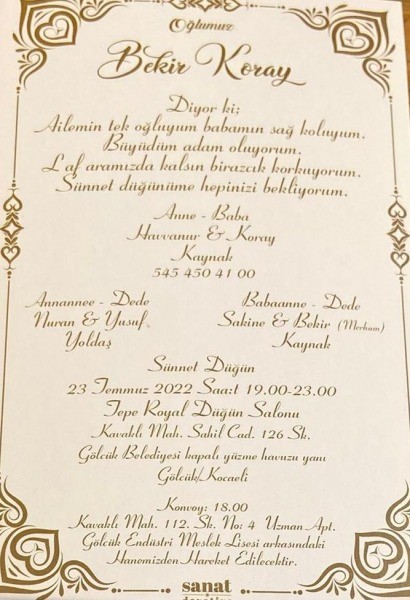 Oğlumuz
Bekir Koray
Diyor ki;
Ailemin tek oğluyum babamın sağ koluyum.
Büyüdüm adam oluyorum.
Laf aramızda kalsın birazcık korkuyorum.
Sünnet düğünüme hepinizi bekliyorum.
Anne - Baba
Havvanur & Koray
Kaynak
545 450 41 00
Annannee - Dede
Nuran & Yusuf
Yoldaş
Babaanne - Dede
Sakine & Bekir (Merhum)
Kaynak
Sünnet Düğün
23 Temmuz 2022 Saa:t 19.00-23.00
Tepe Royal Düğün Salonu
Kavaklı Mah. Sahil Cad. 126 Sk.
Gölcük Belediyesi kapalı yüzme havuzu yanı
Gölcük/Kocaeli
Konvoy: 18.00
Kavaklı Mah. 112. Sk. No: 4 Uzman Apt.
Gölcük Endüstri Meslek Lisesi arkasındaki
Hanemizden Hareket Edilecektir.
sanat